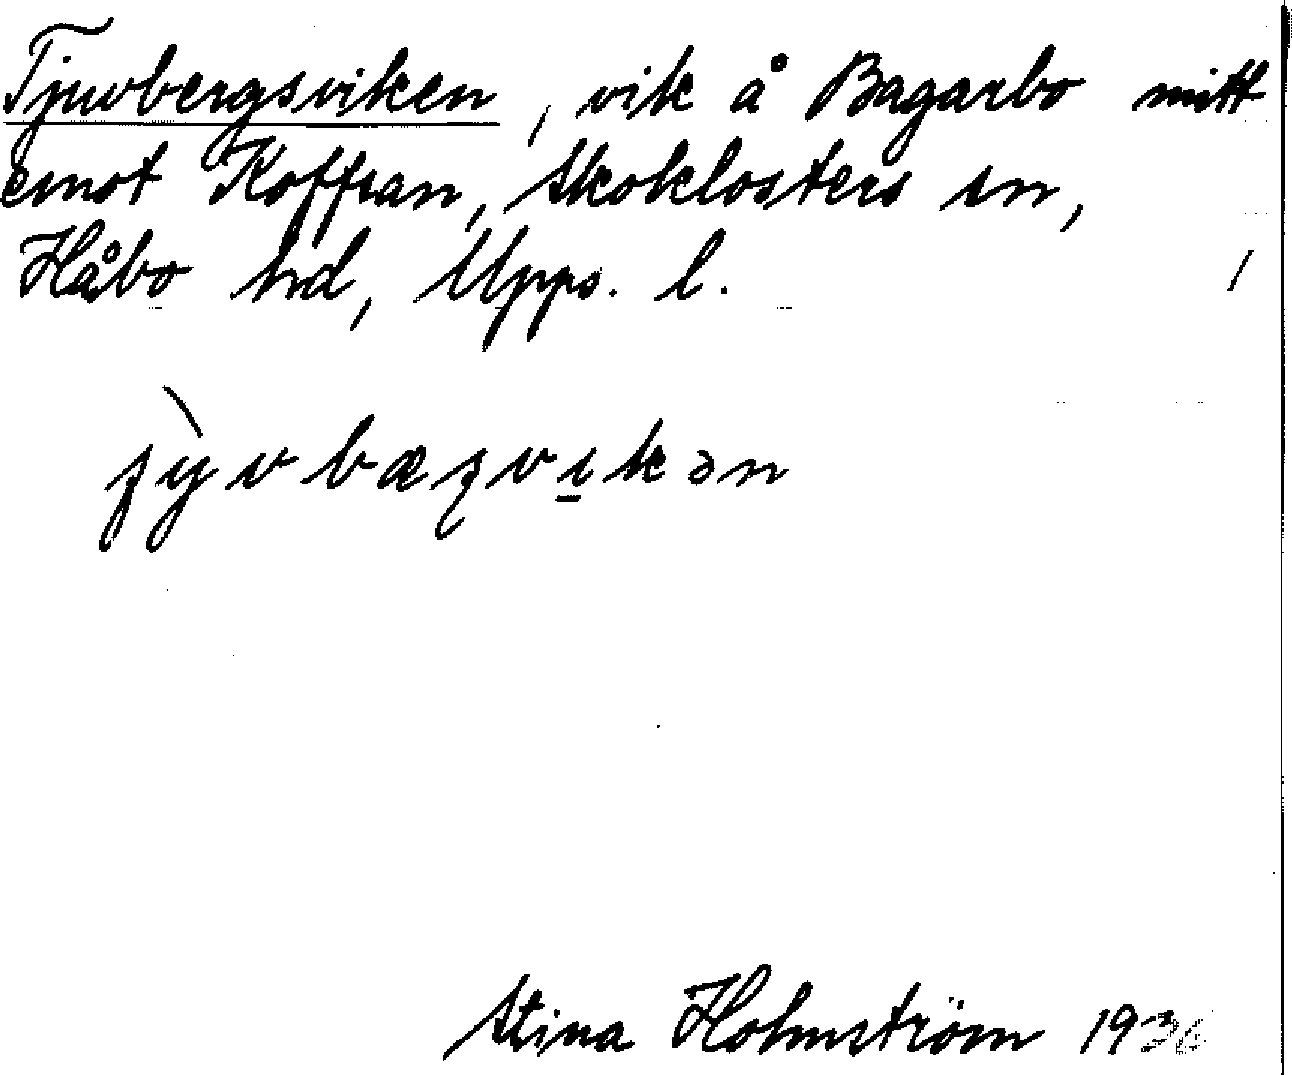 Tjuvbergsviken, vik å Bagarbo mitt
emot Koffsan, Skoklosters sn,
Håbo hd, Upps. l.
ʃỳvbæʂvi̲kən
Stina Holmström 1936